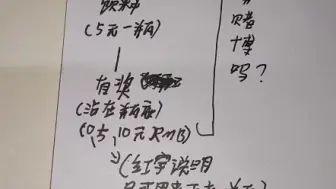 饮料
(5元一瓶)
有奖
(沾在瓶底)
(0,5,10元RMB)
(红字说明
赌
博
吗?